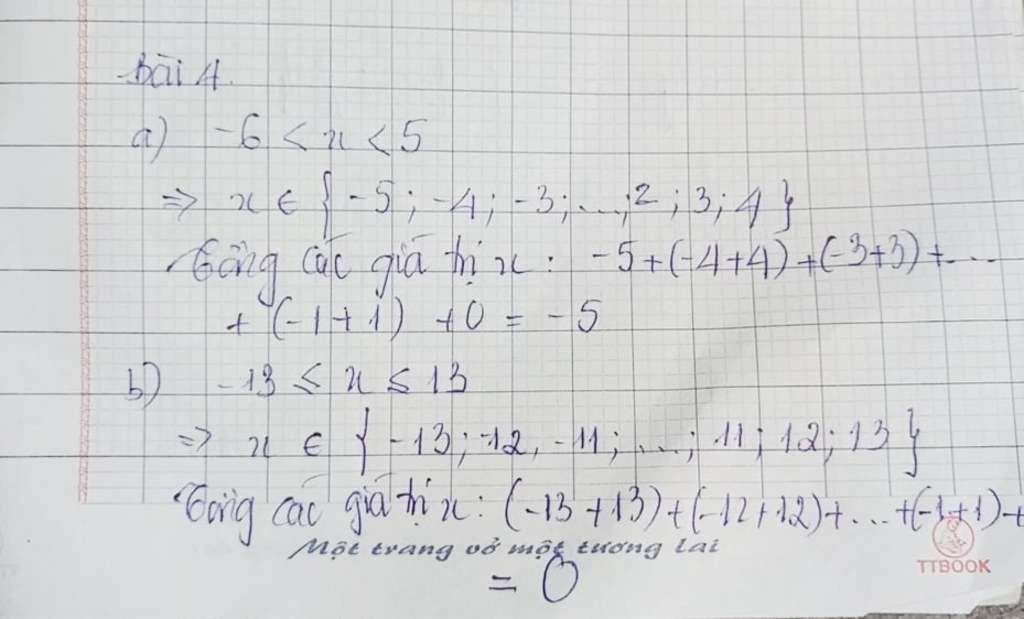 Bài 4.
a) -6 < x < 5
=> x ∈ { -5 ; -4 ; -3 ; ... ; 2 ; 3 ; 4 }
Tổng các giá trị x : -5 + (-4+4) + (-3+3) + ...
+ (-1+1) + 0 = -5
b) -13 ≤ x ≤ 13
=> x ∈ { -13 ; -12 , -11 ; ... ; 11 ; 12 ; 13 }
Tổng các giá trị x : (-13 + 13) + (-12 + 12) + ... + (-1 + 1) +
Một trang vở một tương lai
TTBOOK
= 0